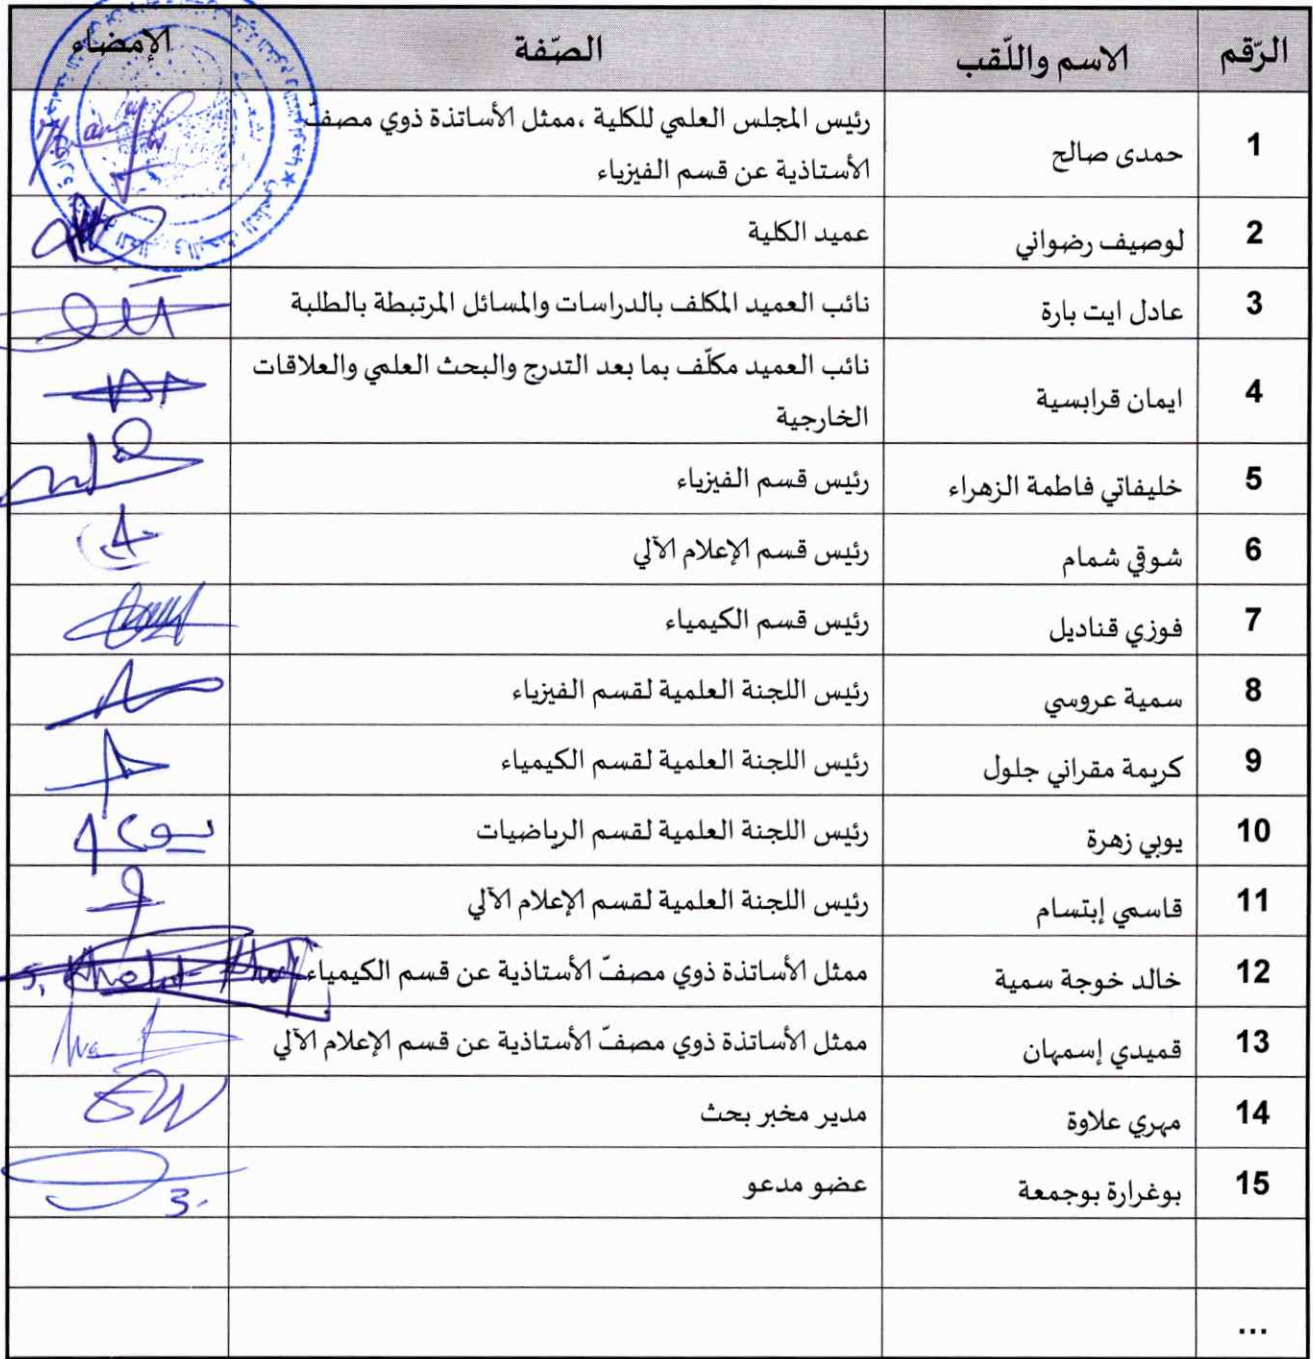 الرّقم الاسم واللّقب الصّفة الإمضاء
1 حمدى صالح رئيس المجلس العلمي للكلية ،ممثل الأساتذة ذوي مصفّ
الأستاذية عن قسم الفيزياء
2 لوصيف رضواني عميد الكلية
3 عادل ايت بارة نائب العميد المكلف بالدراسات والمسائل المرتبطة بالطلبة
4 ايمان قرابسية نائب العميد مكلّف بما بعد التدرج والبحث العلمي والعلاقات
الخارجية
5 خليفاتي فاطمة الزهراء رئيس قسم الفيزياء
6 شوقي شمام رئيس قسم الإعلام الآلي
7 فوزي قناديل رئيس قسم الكيمياء
8 سمية عروسي رئيس اللجنة العلمية لقسم الفيزياء
9 كريمة مقراني جلول رئيس اللجنة العلمية لقسم الكيمياء
10 يوبي زهرة رئيس اللجنة العلمية لقسم الرياضيات
11 قاسمي إبتسام رئيس اللجنة العلمية لقسم الإعلام الآلي
12 خالد خوجة سمية ممثل الأساتذة ذوي مصفّ الأستاذية عن قسم الكيمياء
13 قميدي إسمهان ممثل الأساتذة ذوي مصفّ الأستاذية عن قسم الإعلام الآلي
14 مهري علاوة مدير مخبر بحث
15 بوغرارة بوجمعة عضو مدعو
...